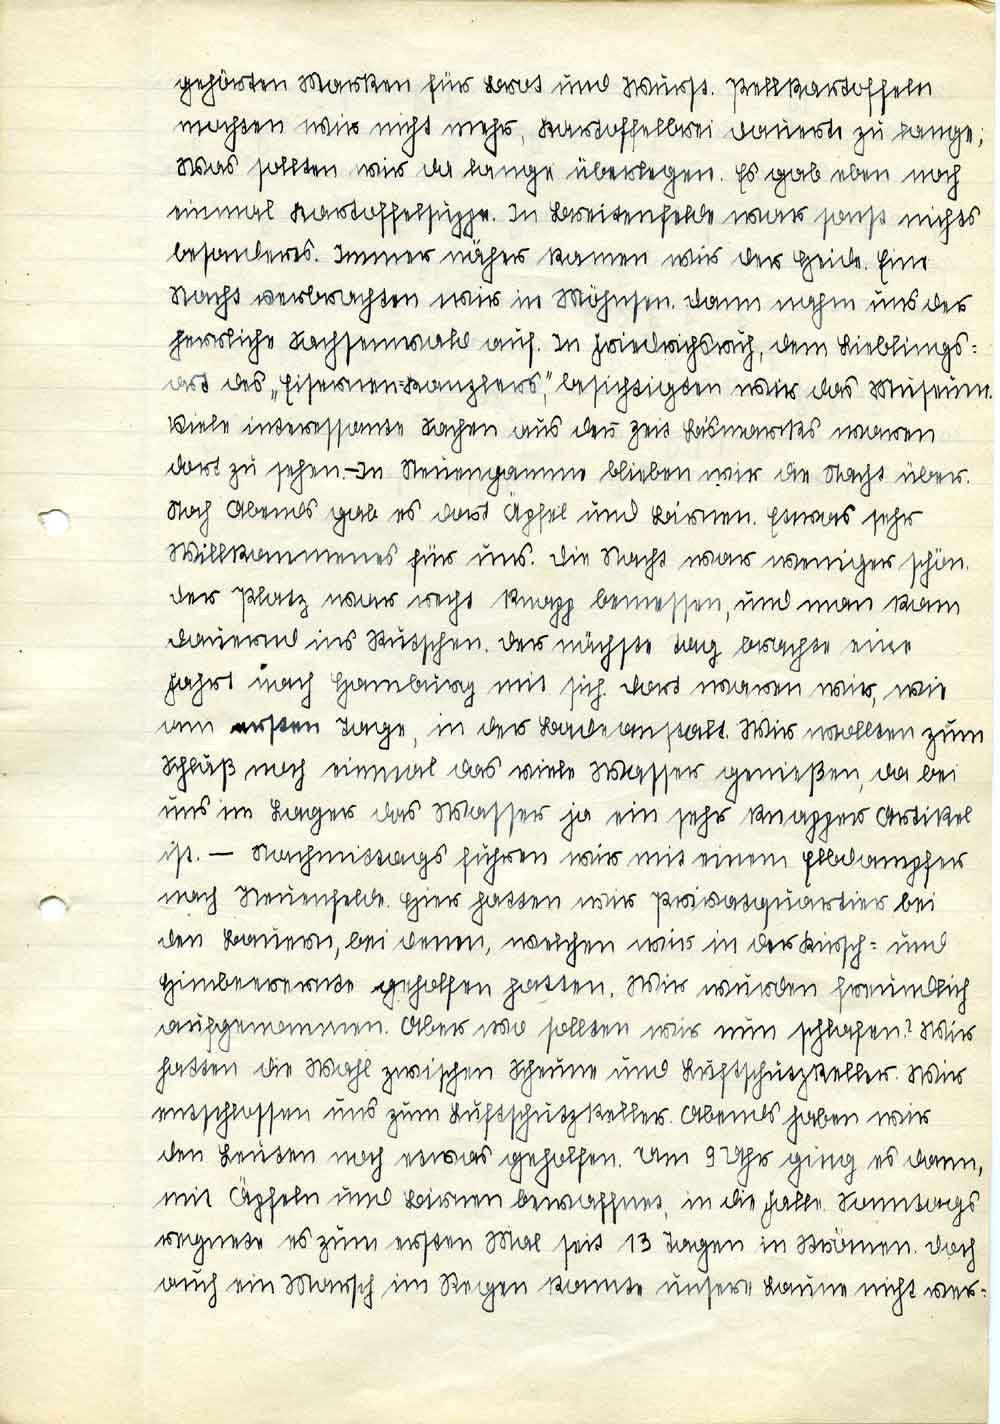 gehörten Marken für Brot und Wurst. Pellkartoffeln
mochten wir nicht mehr, Kartoffelbrei dauerte zu lange;
Was sollten wir da lange überlegen. Es gab eben noch
einmal Kartoffelsuppe. In Breitenfelde war sonst nichts
besonderes. Immer näher kamen wir der Heide. Eine
Nacht verbrachten wir in Möhnsen. Dann nahm uns der
herrliche Sachsenwald auf. In Friedrichsruh, dem Lieblings=
ort des „Eisernen=Kanzlers“, besichtigten wir das Museum.
Viele interessante Sachen aus der Zeit Bismarcks waren
dort zu sehen.—In Neuengamme blieben wir die Nacht über.
Noch Abends gab es dort Äpfel und Birnen. Etwas sehr
Willkommenes für uns. Die Nacht war weniger schön.
Der Platz war recht knapp bemessen, und man kam
dauernd ins Rutschen. Der nächste Tag brachte eine
Fahrt nach Hamburg mit sich. Dort waren wir, wie
am ersten Tage, in der Badeanstalt. Wir wollten zum
Schluß noch einmal das viele Wasser genießen, da bei
uns im Lager das Wasser ja ein sehr knapper Artikel
ist. — Nachmittags fuhren wir mit einem Elbdampfer
nach Neuenfelde. Hier hatten wir Privatquartier bei
den Bauern, bei denen, welchen wir in der Kirsch= und
Himbeerernte geholfen hatten. Wir wurden freundlich
aufgenommen. Aber wo sollten wir nun schlafen? Wir
hatten die Wahl zwischen Scheune und Luftschutzkeller. Wir
entschlossen uns zum Luftschutzkeller. Abends haben wir
den Leuten noch etwas geholfen. Um 9 Uhr ging es dann,
mit Äpfeln und Birnen bewaffnet, in die Falle. Sonntags
regnete es zum ersten Mal seit 13 Tagen in Strömen. Doch
auch ein Marsch im Regen konnte unsere Laune nicht ver=